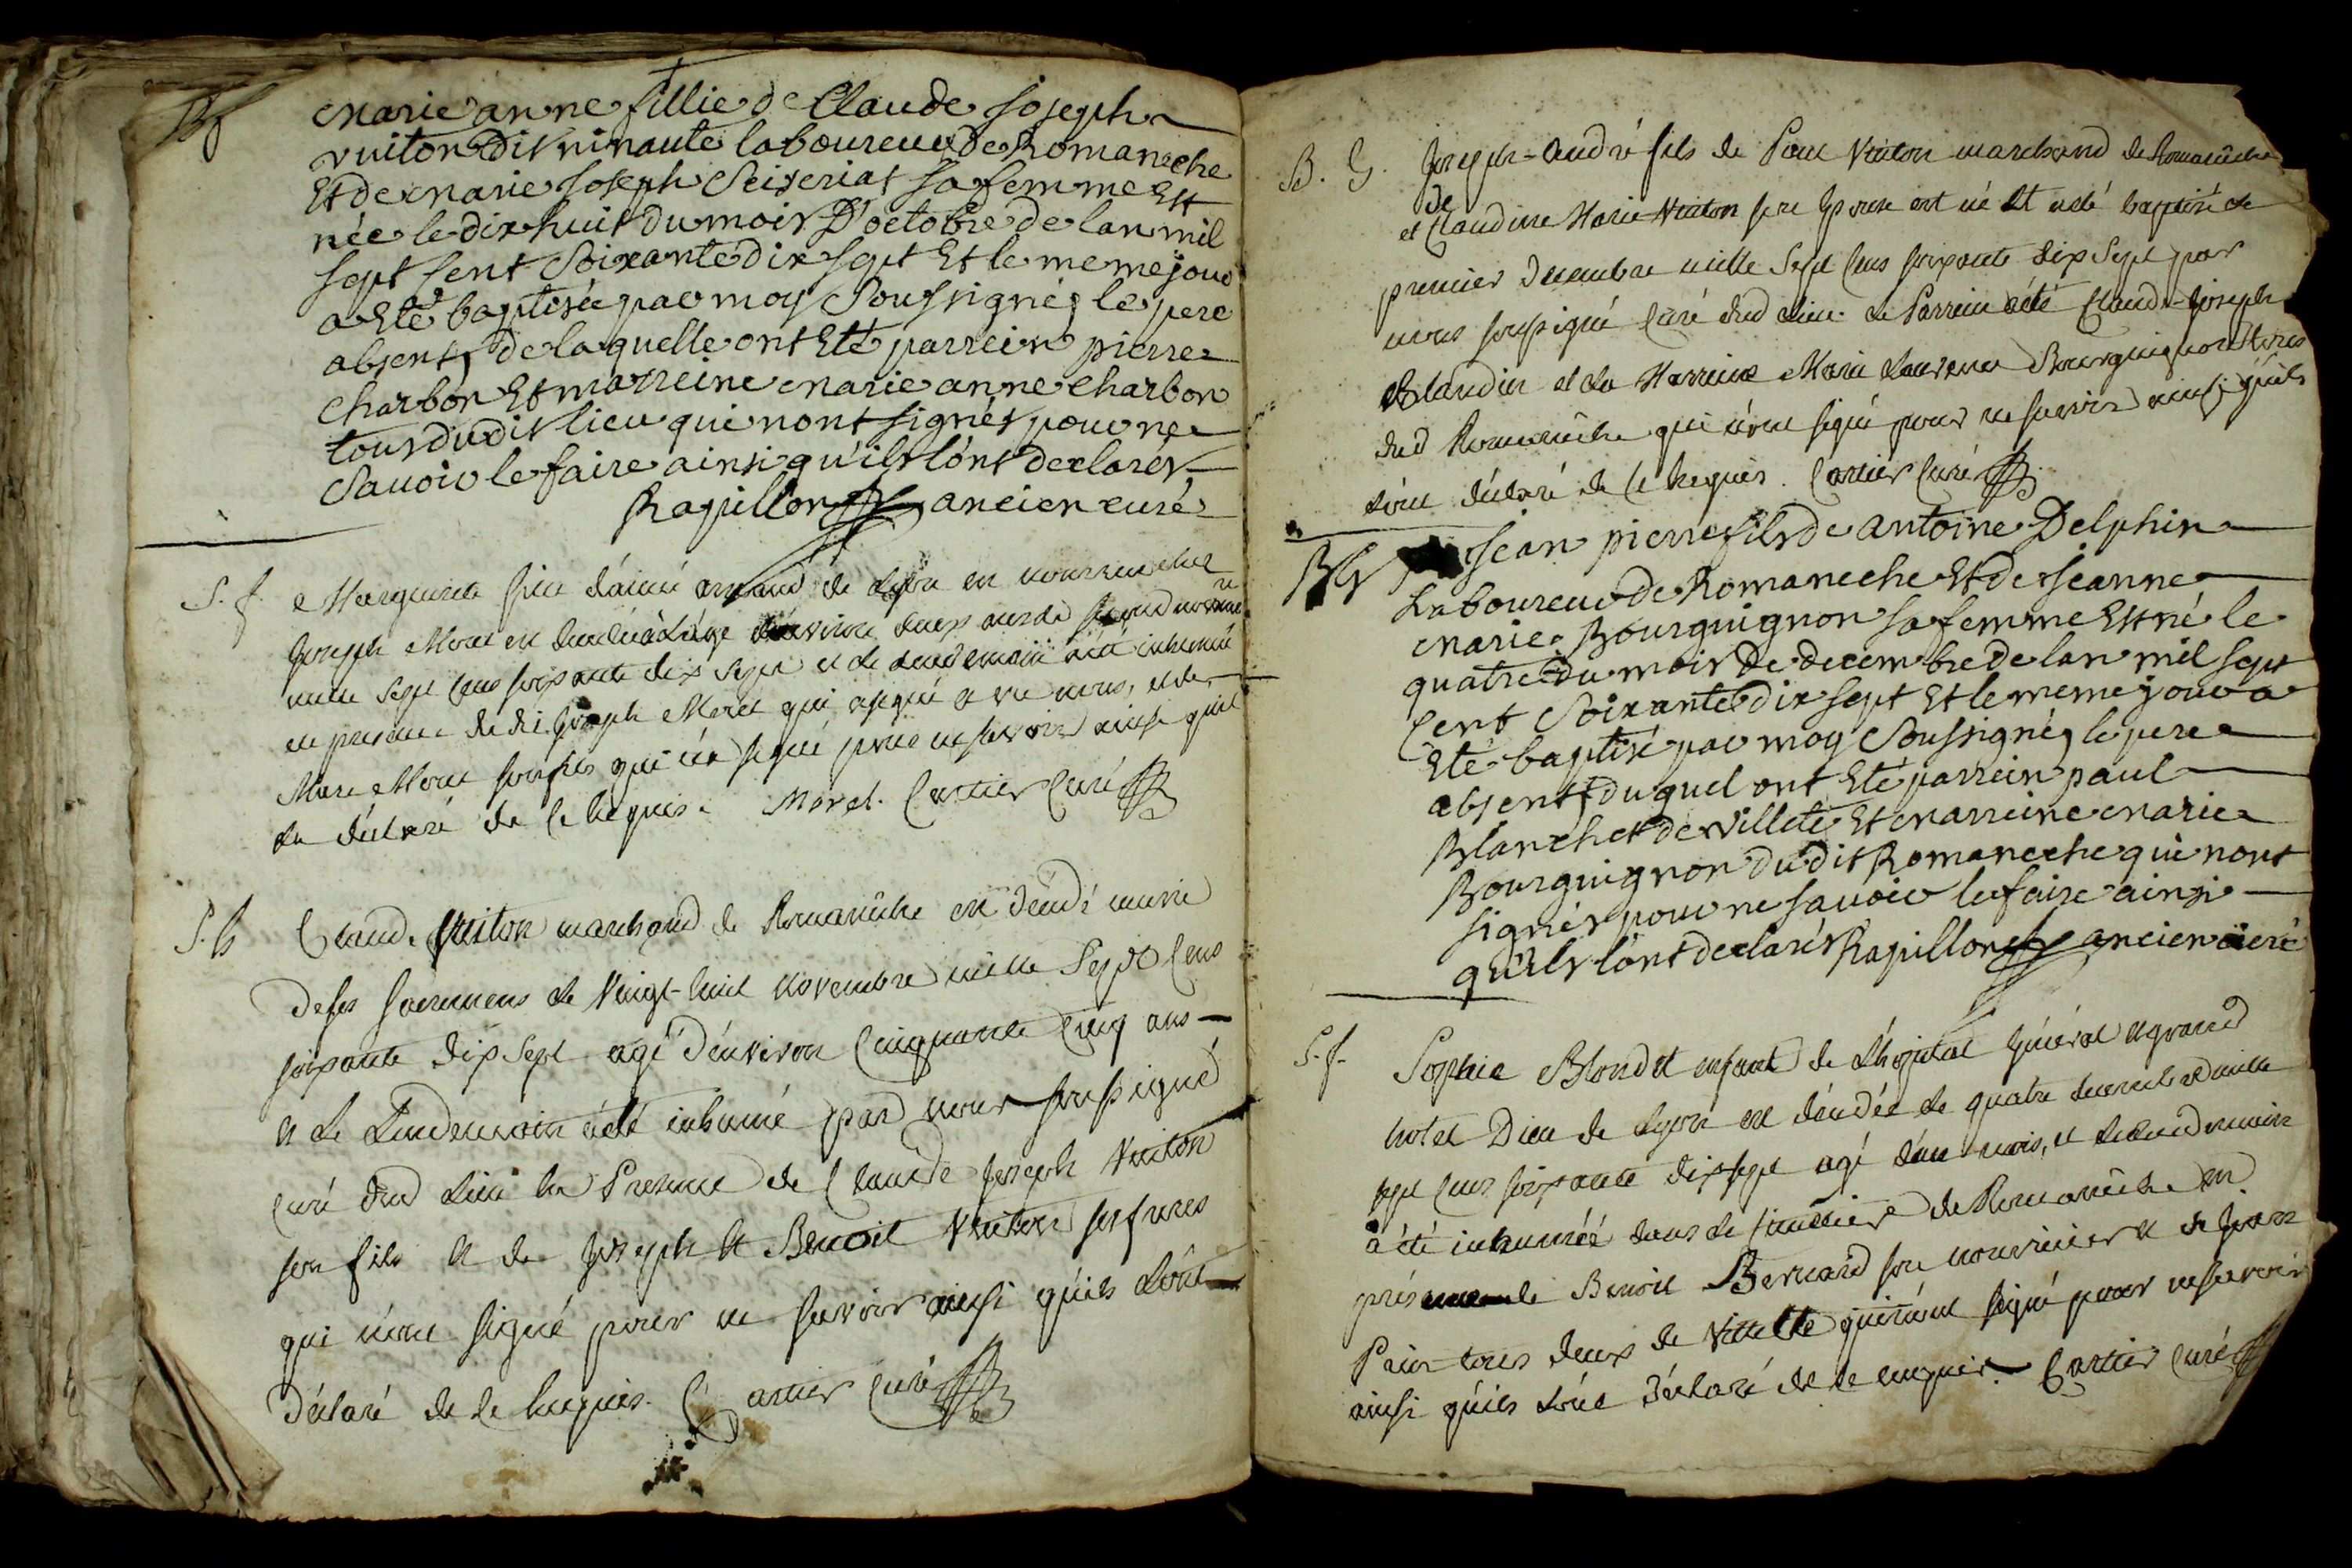 Bf
marie anne fillie de Claude Joseph
vuiton dit ninaute laboureur de Romaneche
Et de marie Joseph Seiseriat sa femme Est
née le dix huit du mois D'octobre de lan mil
sept sent Soixante dix sept Et le meme jour
a Eté baptisée par moy Soussigné, le pere
absent, de laquelle ont Eté parrein pierre
charbon Et marreine marie anne charbon
tous dudit lieu qui nont signés pour ne
savoir le faire ainsi qu'ils lónt declarés
Rapillon ancien curé
S. f. Marguerite de Lyon en
Joseph Morel
mille sept cens soixante dix sept et le lendemain a été inhumée
en presence dudit Joseph Morel qui a signé avec nous, et de
Marc Morel son fils qui n'a signé pour ne savoir ainsi quil
la déclaré de ce requis. Morel. Cartier Curé
S. h Claude Vuiton marchand de Romanêche est décédé munie
de ses sacremens le Vingt-huit novembre mille Sept Cens
soixante dix Sept agé d'environ Cinquante Cinq ans
et le Lendemain a été inhumé par nous soussigné
Curé dud Lieu En Presence de Claude Joseph Vuiton
son fils et de Joseph et Benoit Vuiton ses freres
qui n'ont signé pour ne savoir ainsi qu'ils L'ont
Déclaré de ce requis. Cartier curé
B. G. Joseph-André fils de Paul Vuiton marchand de Romanêche
de
et Claudine Marie Vuiton son Epouse est né Et a été baptisé le
premier Decembre mille Sept Cens soixante dix Sept par
nous soussigné Curé dud Lieu. Le Parrein a été Claude-Joseph
Blandin et La Marreine Marie Bourguignon tous
dud Romanêche qui n'ont signé pour ne savoir ainsi qu'ils
L'ont déclaré de Ce requis. Cartier Curé
BG Jean pierre fils de antoine Delphin
Laboureur de Romaneche Et de Jeanne
marie Bourguignon sa femme Est né le
quatre du mois de decembre de lan mil sept
Cent Soixante dix sept Et le meme jour a
Eté baptisé par moy Soussigné, le pere
absent, duquel ont Eté parrein paul
Blanchet de villete Et marreine marie
Bourguignon dudit Romaneche qui nont
signés pour ne savoir le faire ainsi
qu'ils lónt declarés Rapillon ancien curé
S. f. Sophie Blondet enfant de L'hopital Général et grand
hotel Dieu de Lyon est décédée le quatre decembre mille
sept Cens soixante dix sept agé d'un mois, et le Lendemain
a été inhumée dans le Cimetiere de Romanêche en
présence de Benoit Bernard son nourricier et de Jean
tous deux de Villette qui n'ont signé pour ne savoir
ainsi qu'ils L'ont Déclaré de ce enquis. Cartier curé